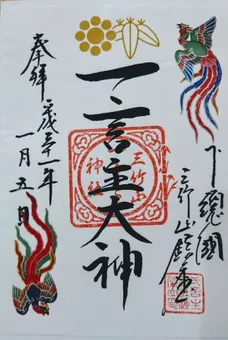 下總國
三竹山鎮座
一言主大神
三竹山
神社
奉拝 平成三十一年
一月五日